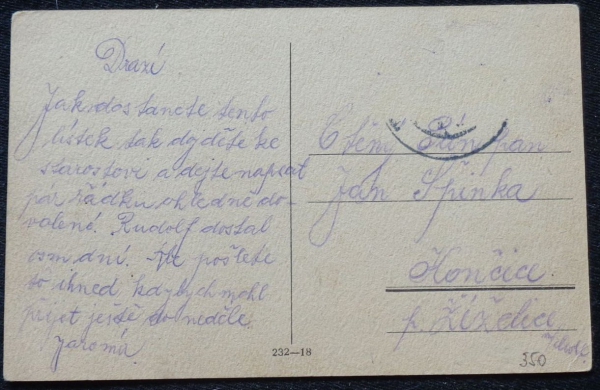 Drazí
Jak dostanete tento
lístek tak dojdíte ke
starostovi a dejte napsat
pár řádku ohledně do-
volené. Rudolf dostal
osm dní. pošlete
to ihned kdybych mohl
přijet ještě do neděle
Jaromír
Ctěný pan
Jan Špinka
Končice
p. Žíželice
232—18
350